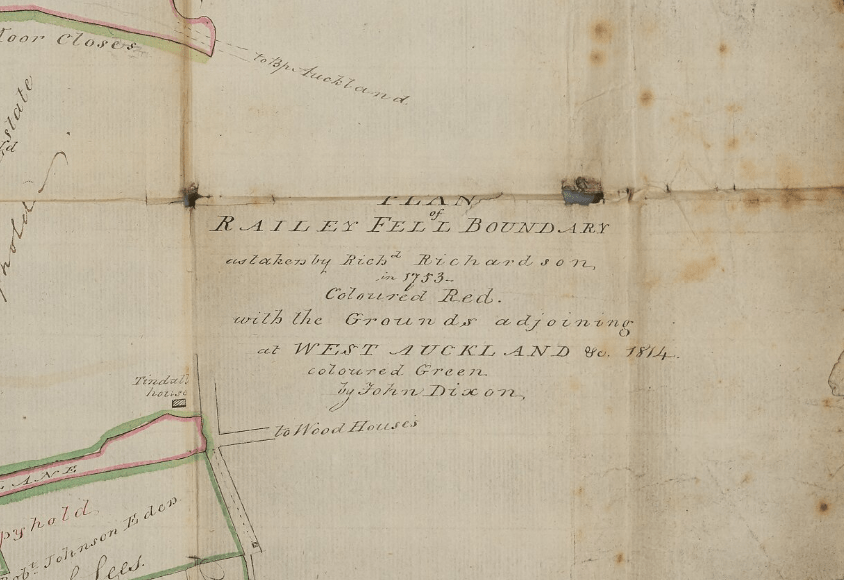 Moor Closes
to Bp. Auckland
PLAN
of
RAILEY FELL BOUNDARY
as taken by Richd Richardson,
in 1753
Coloured Red.
with the Grounds adjoining
at WEST AUCKLAND &c. 1814.
coloured Green.
by John Dixon,
Tindall
house
to Wood Houses
LANE
pyhold
Robt. Johnson Eden
Lees.
state
hold